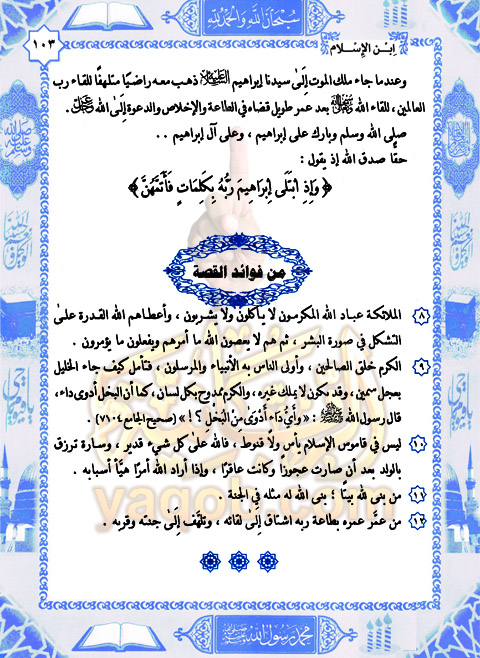 سبحان الله والحمد لله
ابن الإسلام
١٠٣
وعندما جاء ملك الموت إلى سيدنا إبراهيم عليه السلام ذهب معه راضيًا متلهفًا للقاء رب
العالمين ، للقاء الله بعد عمر طويل قضاه في الطاعة والإخلاص والدعوة إلى الله
صلى الله وسلم وبارك على إبراهيم ، وعلى آل إبراهيم . .
حقًا صدق الله إذ يقول :
﴿ وَإِذِ ابْتَلَى إِبْرَاهِيمَ رَبُّهُ بِكَلِمَاتٍ فَأَتَمَّهُنَّ ﴾
من فوائد القصة
٨ الملائكة عباد الله المكرمون لا يأكلون ولا يشربون ، وأعطاهم الله القدرة على
التشكل في صورة البشر ، ثم هم لا يعصون الله ما أمرهم ويفعلون ما يؤمرون .
٩ الكرم خلق الصالحين ، وأولى الناس به الأنبياء والمرسلون ، فتأمل كيف جاء الخليل
بعجل سمين ، وقد يكون لا يملك غيره ، والكرم ممدوح بكل لسان ، كما أن البخل أدوى داء ،
قال رسول الله ﷺ : « وأي داء أدوى من البخل ؟ ! » (صحيح الجامع ٧١٠٤)
١٠ ليس في قاموس الإسلام يأس ولا قنوط ، فالله على كل شيء قدير ، وسارة ترزق
بالولد بعد أن صارت عجوزا وكانت عاقرًا ، وإذا أراد الله أمرًا هيَّأ أسبابه .
١١ من بنى لله بيتًا ؛ بنى الله له مثله في الجنة .
١٢ من عمَّر عمره بطاعة ربه اشتاق إلى لقائه ، وتلهَّف إلى جنته وقربه .
yaqob.com
محمد رسول الله ﷺ